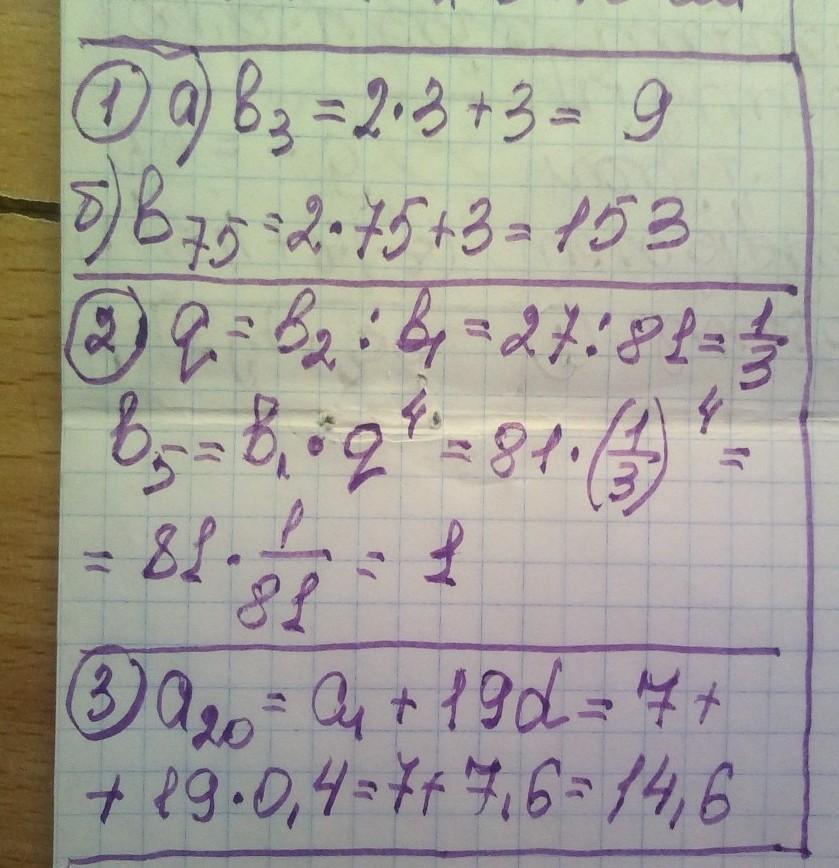 ① а) в₃ = 2·3+3 = 9
б) в₇₅ = 2·75+3 = 153
② q = в₂ : в₁ = 27 : 81 = 1/3
в₅ = в₁ · q⁴ = 81 · (1/3)⁴ =
= 81 · 1/81 = 1
③ a₂₀ = a₁ + 19d = 7 +
+ 19·0,4 = 7+7,6 = 14,6